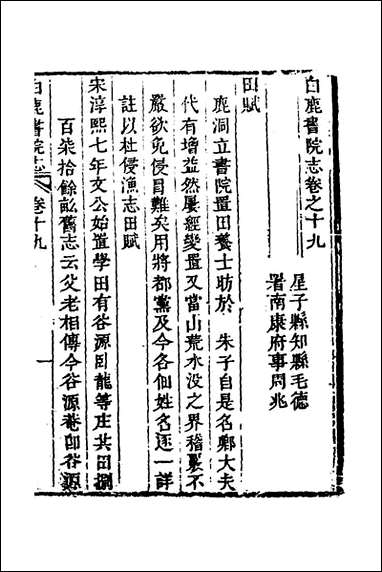 白鹿書院志卷之十九
星子縣知縣毛德
署南康府事同兆
田賦
鹿洞立書院置田養士昉於 朱子自是名鄉大夫
代有增益然屢經變置又當山荒水没之界稽覈不
嚴欲免侵冒難矣用將都黨及今各佃姓名逐一詳
註以杜侵漁志田賦
宋淳熙七年文公始置學田有谷源臥龍等庄共田捌
百柒拾餘畝舊志云父老相傳今谷源菴卽谷源
白鹿書院志
卷十九
一